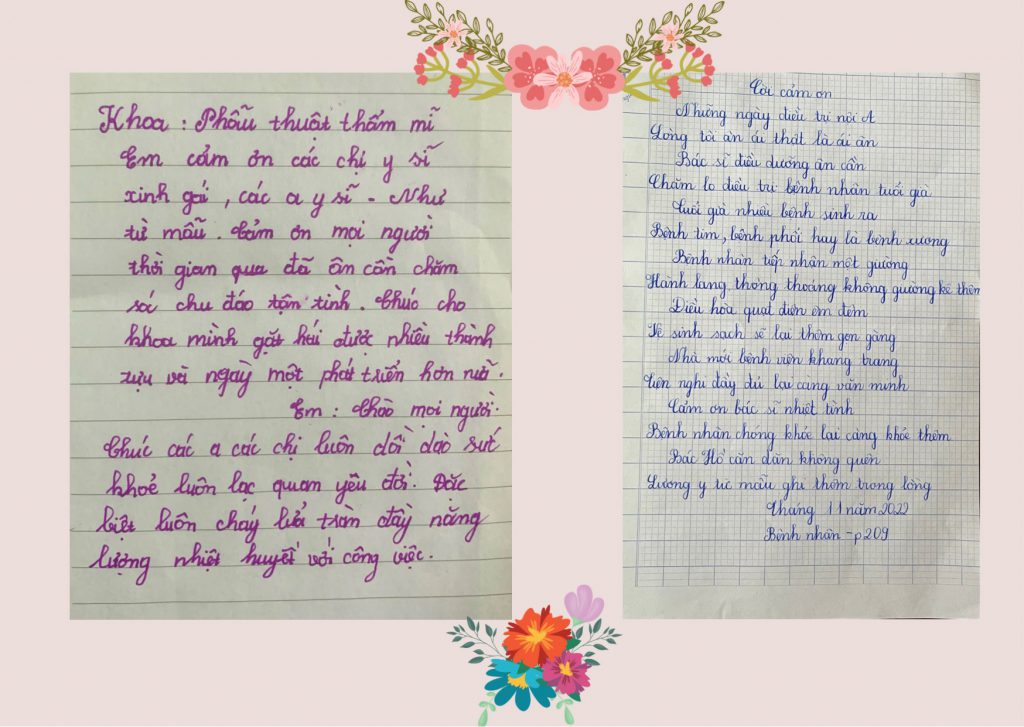 Khoa : Phẫu thuật thẩm mĩ
Em cảm ơn các chị y sĩ
xinh gái , các a y sĩ - Như
từ mẫu . Cảm ơn mọi người
thời gian qua đã ân cần chăm
sóc chu đáo tận tình . Chúc cho
khoa mình gặt hái được nhiều thành
tựu và ngày một phát triển hơn nữa .
Em : Chào mọi người .
Chúc các a các chị luôn dồi dào sức
khoẻ luôn lạc quan yêu đời . Đặc
biệt luôn cháy lửa tràn đầy năng
lượng nhiệt huyết với công việc .
Lời cảm ơn
Những ngày điều trị nội A
Lòng tôi ân ái thật là ái ân
Bác sĩ điều dưỡng ân cần
Chăm lo điều trị bệnh nhân tuổi già
Tuổi già nhiều bệnh sinh ra
Bệnh tim, bệnh phổi hay là bệnh xương
Bệnh nhân tiếp nhận một giường
Hành lang thông thoáng không giường kê thêm
Điều hòa quạt điện êm đềm
Vệ sinh sạch sẽ lại thêm gọn gàng
Nhà mới bệnh viện khang trang
Tiện nghi đầy đủ lại càng văn minh
Cảm ơn bác sĩ nhiệt tình
Bệnh nhân chóng khỏe lại càng khỏe thêm
Bác Hồ căn dặn không quên
Lương y từ mẫu ghi thêm trong lòng
Tháng 11 năm 2022
Bệnh nhân - p209